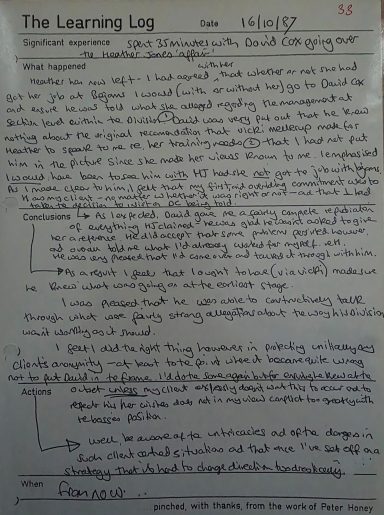 33
The Learning Log Date 16/10/87
Significant experience spent 35 minutes with David Cox going over
the Heather Jones 'affair'
What happened with her
Heather has now left - I had agreed, that whether or not she had
got her job at I would (with or without her) go to David Cox
and ensure he was told what she alleged regarding the management at
section level within the Division ① David was very put out that he knew
nothing about the original recommendation that Vicki made for
Heather to speak to me re. her training needs ② that I had not put
him in the picture since she made her views known to me. I emphasised
I would have been to see him with HJ had she not got to job with
As I made clear to him, I felt that my first and overriding commitment was to
HJ as my client - no matter whether it was right or not - ad that I
to DC being told.
Conclusions → As I expected, David gave me a fairly complete repudiation
of everything HJ claimed - he was glad he wasn't asked to give
her a reference. He did accept that some problems existed however
and told me what I'd already worked for myself
He was very pleased that I'd come over and talked it through with him.
→ As a result I feel that I ought to have (via Vicki) made sure
he knew what was going on at the earliest stage.
I was pleased that he was able to constructively talk
through what were fairly strong allegations about the way his Division
wasn't working as it should.
I feel I did the right thing however in protecting initially my
client's anonymity - at least to the point where it became quite wrong
not to put David in the frame. I'd do the same again but
outset unless my client expressly doesn't want this to occur and to
respect his/her wishes does not in my view conflict too greatly with
the bosses position.
Actions
→ Well be aware of the intricacies and of the dangers in
such client centred situations and that once I've set off on a
strategy that it's hard to change direction too drastically.
When
From now...
pinched, with thanks, from the work of Peter Honey